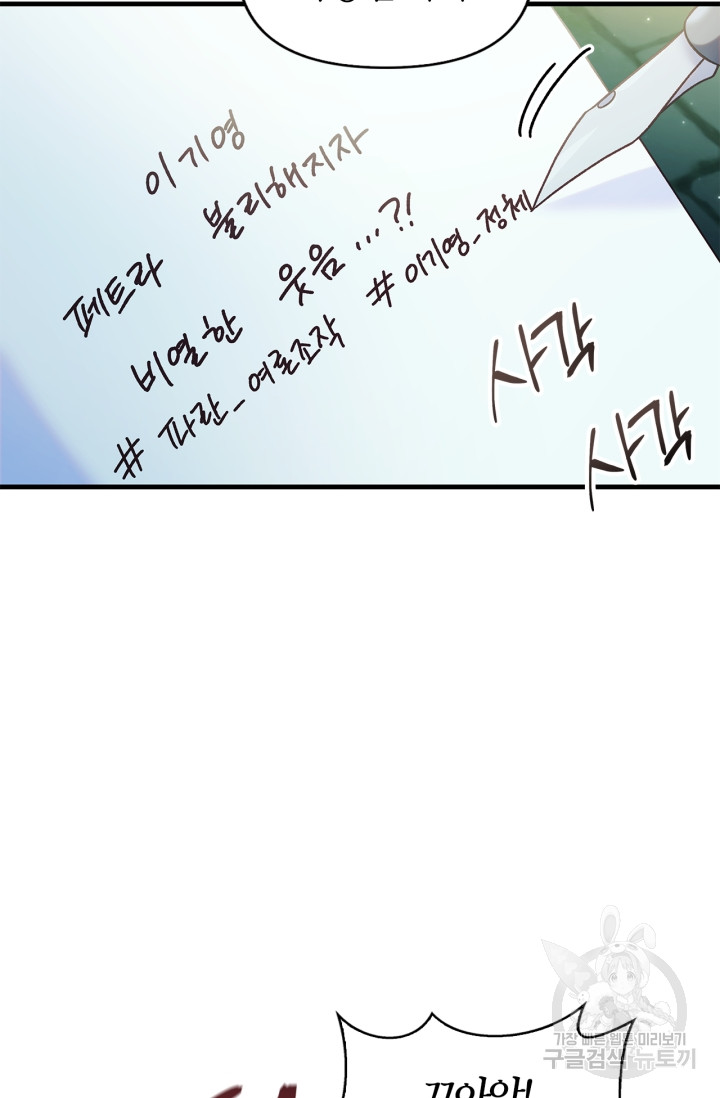 이기영
페트라 불리해지자
비열한 웃음...?!
#파란_여론조작 #이기영_정체
사각
사각
가장 빠른 웹툰 미리보기
구글검색 뉴토끼
끄아악!